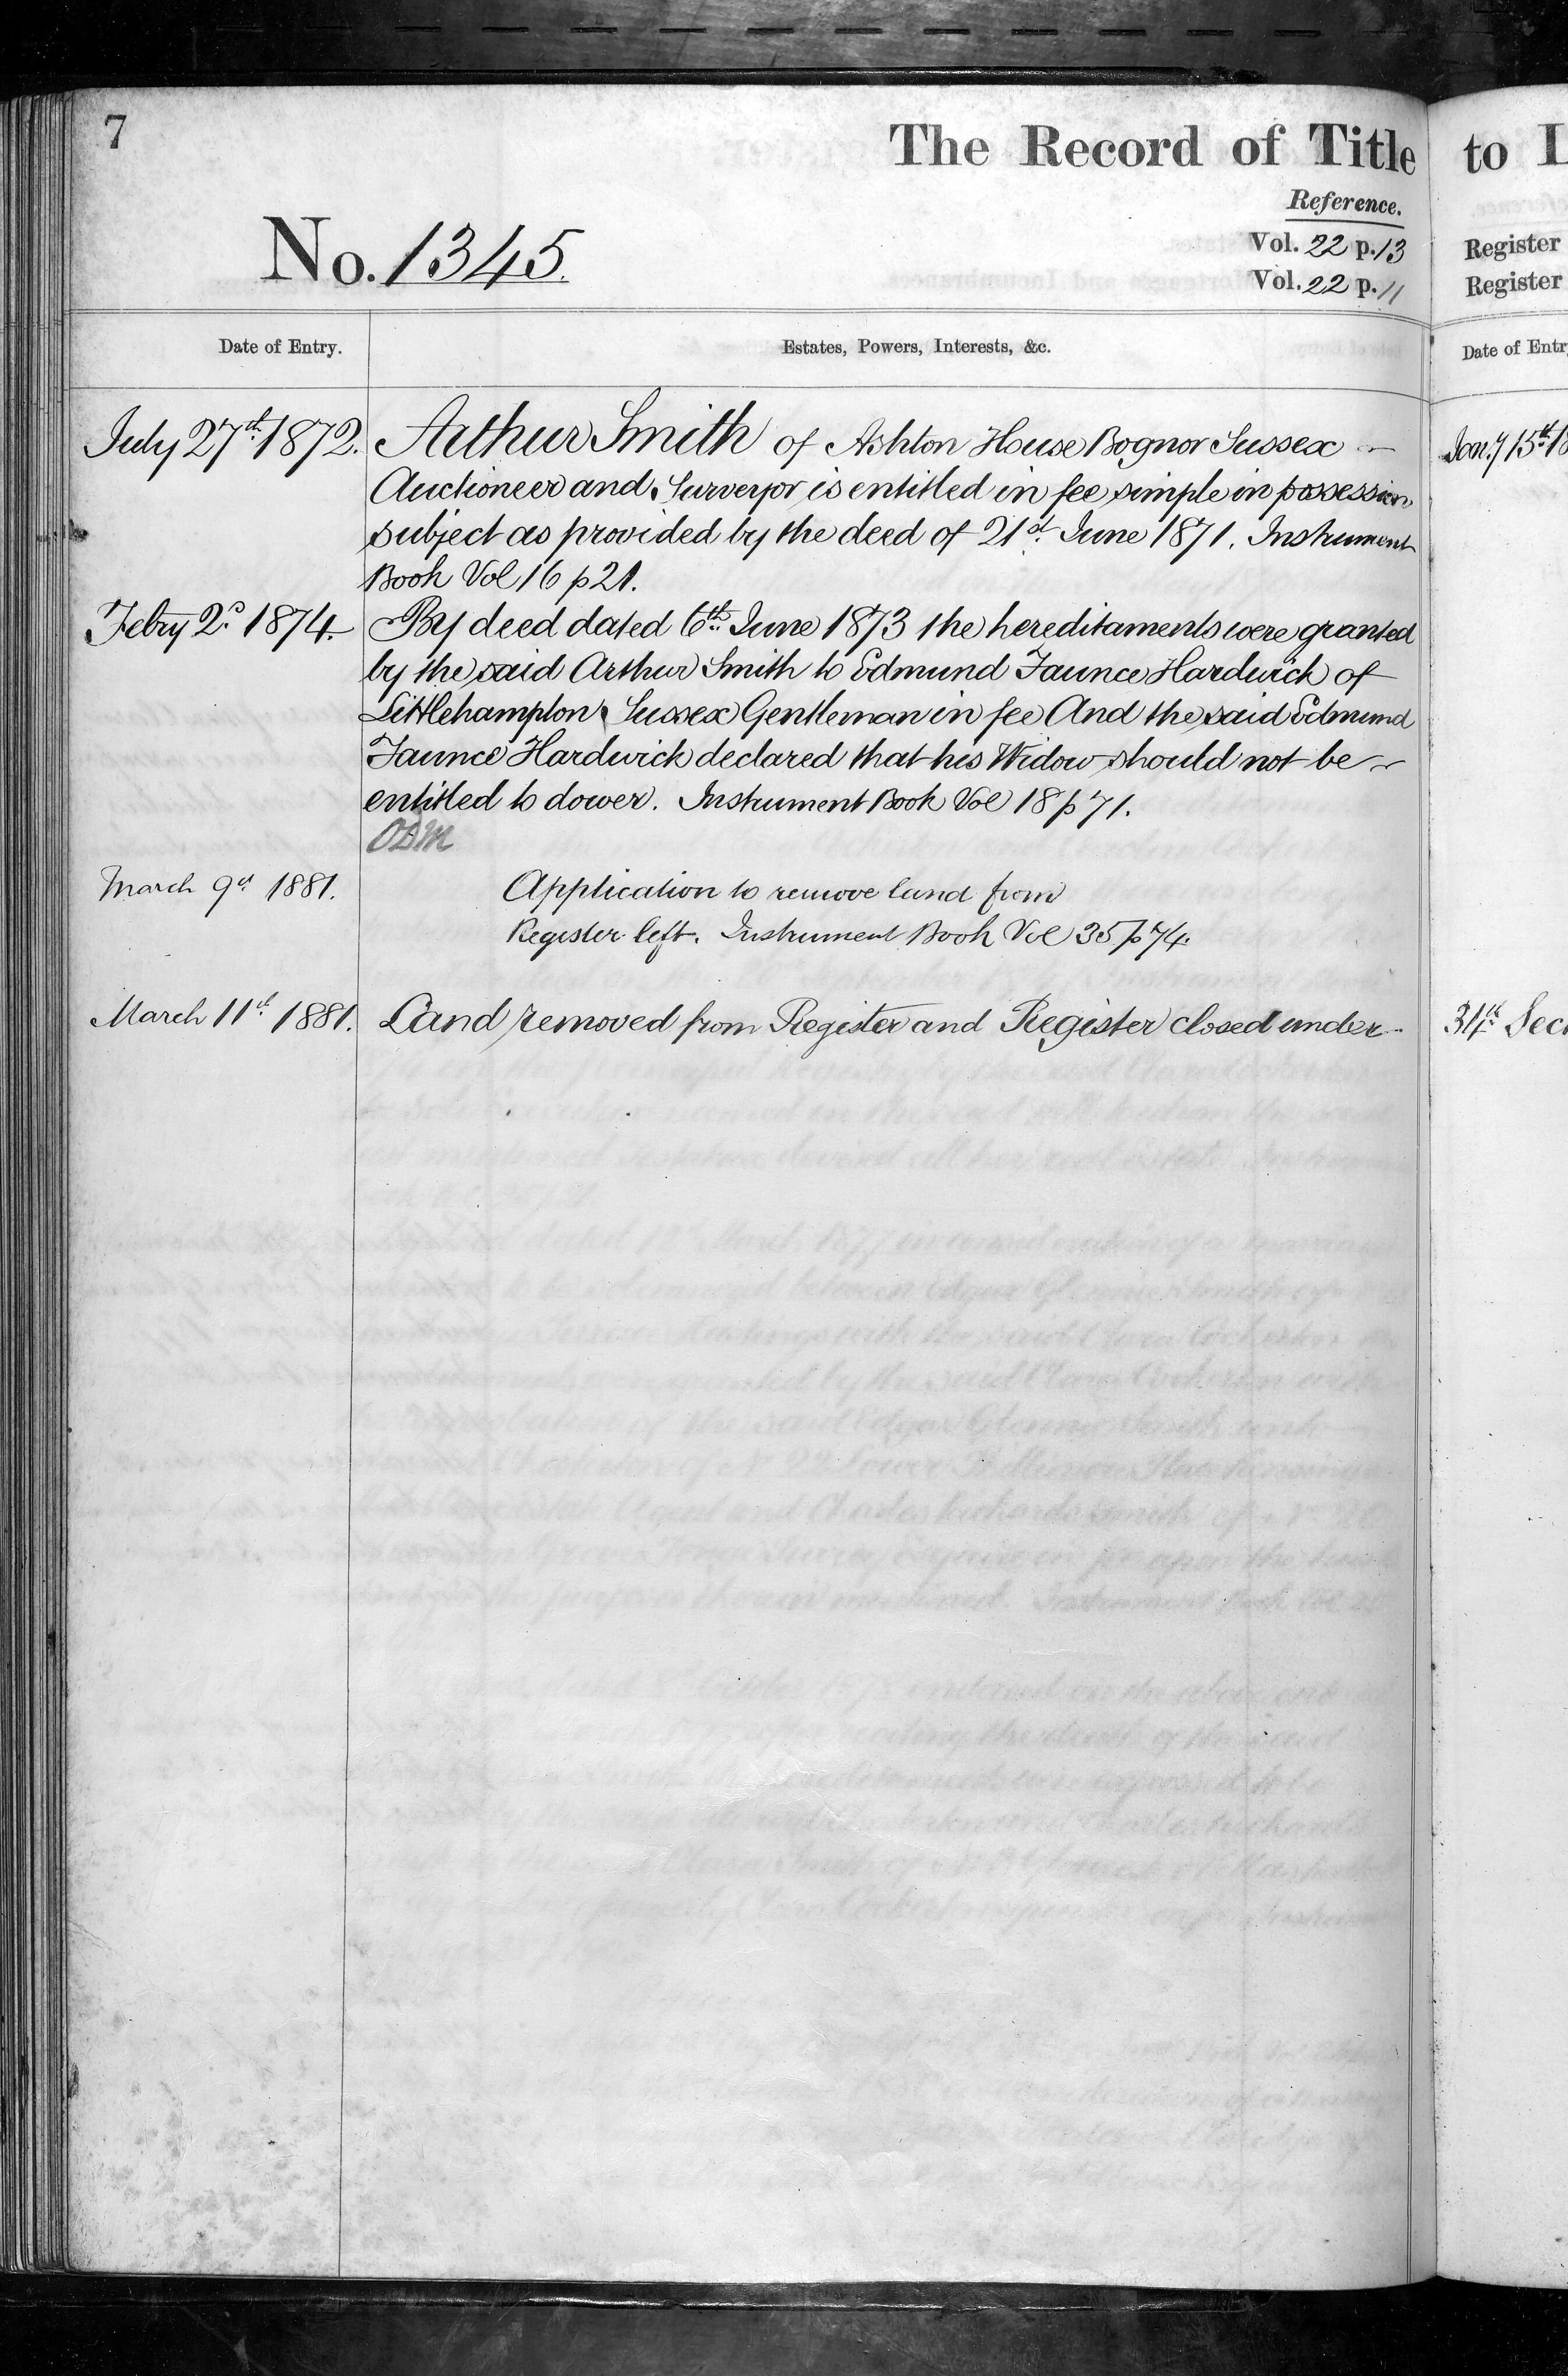 7
The Record of Title
Reference.
No. 1345.
Vol. 22 p. 13
Vol. 22 p. 11
Date of Entry.
Estates, Powers, Interests, &c.
July 27th. 1872. Arthur Smith of Ashton House Bognor Sussex
Auctioneer and Surveyor is entitled in fee simple in possession
subject as provided by the deed of 21st. June 1871. Instrument
Book Vol 16 p 21.
Febry 2d. 1874. By deed dated 6th. June 1873 the hereditaments were granted
by the said Arthur Smith to Edmund Faunce Hardwick of
Littlehampton Sussex Gentleman in fee And the said Edmund
Faunce Hardwick declared that his Widow should not be
entitled to dower. Instrument Book Vol 18 p 71.
March 9th 1881. Application to remove land from
Register left. Instrument Book Vol 35 p 74.
March 11th. 1881. Land removed from Register and Register closed under
to L
Register
Register
Date of Entr
Jany 15th 18
34th. Sec